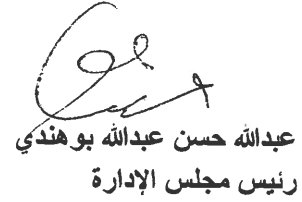 عبدالله حسن عبدالله بوهندي
رئيس مجلس الإدارة